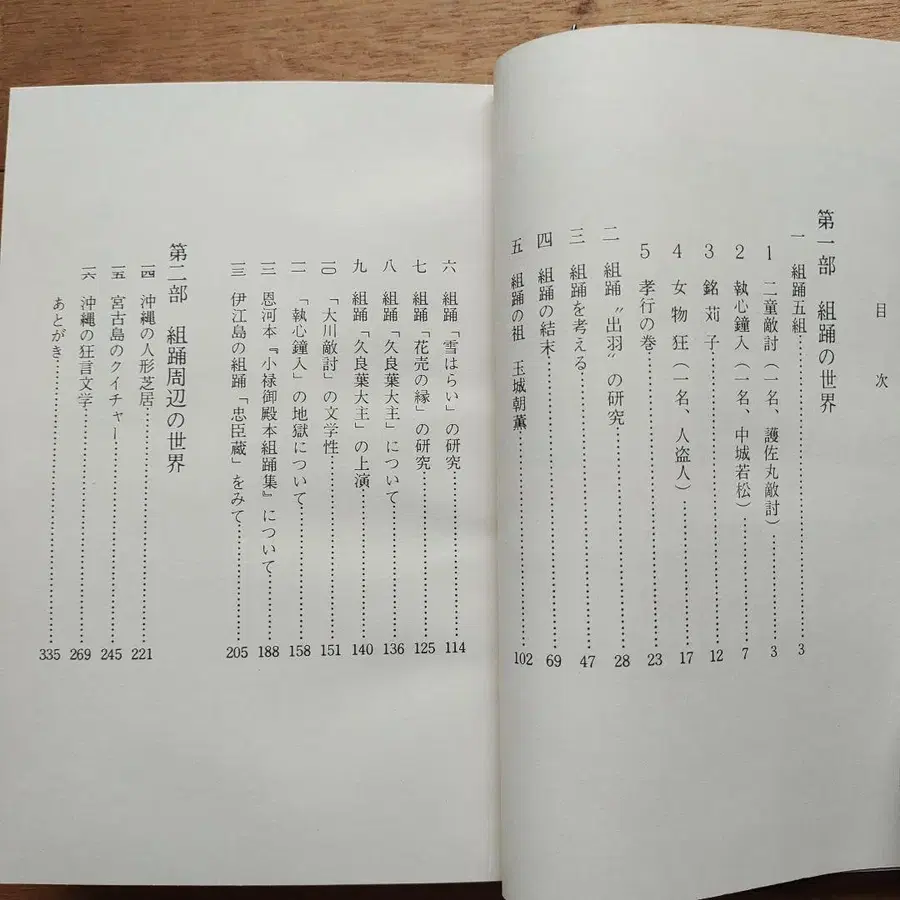 目次
第一部 組踊の世界
一 組踊五組……3
1 二童敵討（一名、護佐丸敵討）……3
2 執心鐘入（一名、中城若松）……7
3 銘苅子……12
4 女物狂（一名、人盗人）……17
5 孝行の巻……23
二 組踊〝出羽〟の研究……28
三 組踊を考える……47
四 組踊の結末……69
五 組踊の祖 玉城朝薫……102
六 組踊「雪はらい」の研究……114
七 組踊「花売の縁」の研究……125
八 組踊「久良葉大主」について……136
九 組踊「久良葉大主」の上演……140
一〇 「大川敵討」の文学性……151
一一 「執心鐘入」の地獄について……158
一二 恩河本『小禄御殿本組踊集』について……188
一三 伊江島の組踊「忠臣蔵」をみて……205
第二部 組踊周辺の世界
一四 沖縄の人形芝居……221
一五 宮古島のクイチャー……245
一六 沖縄の狂言文学……269
あとがき……335